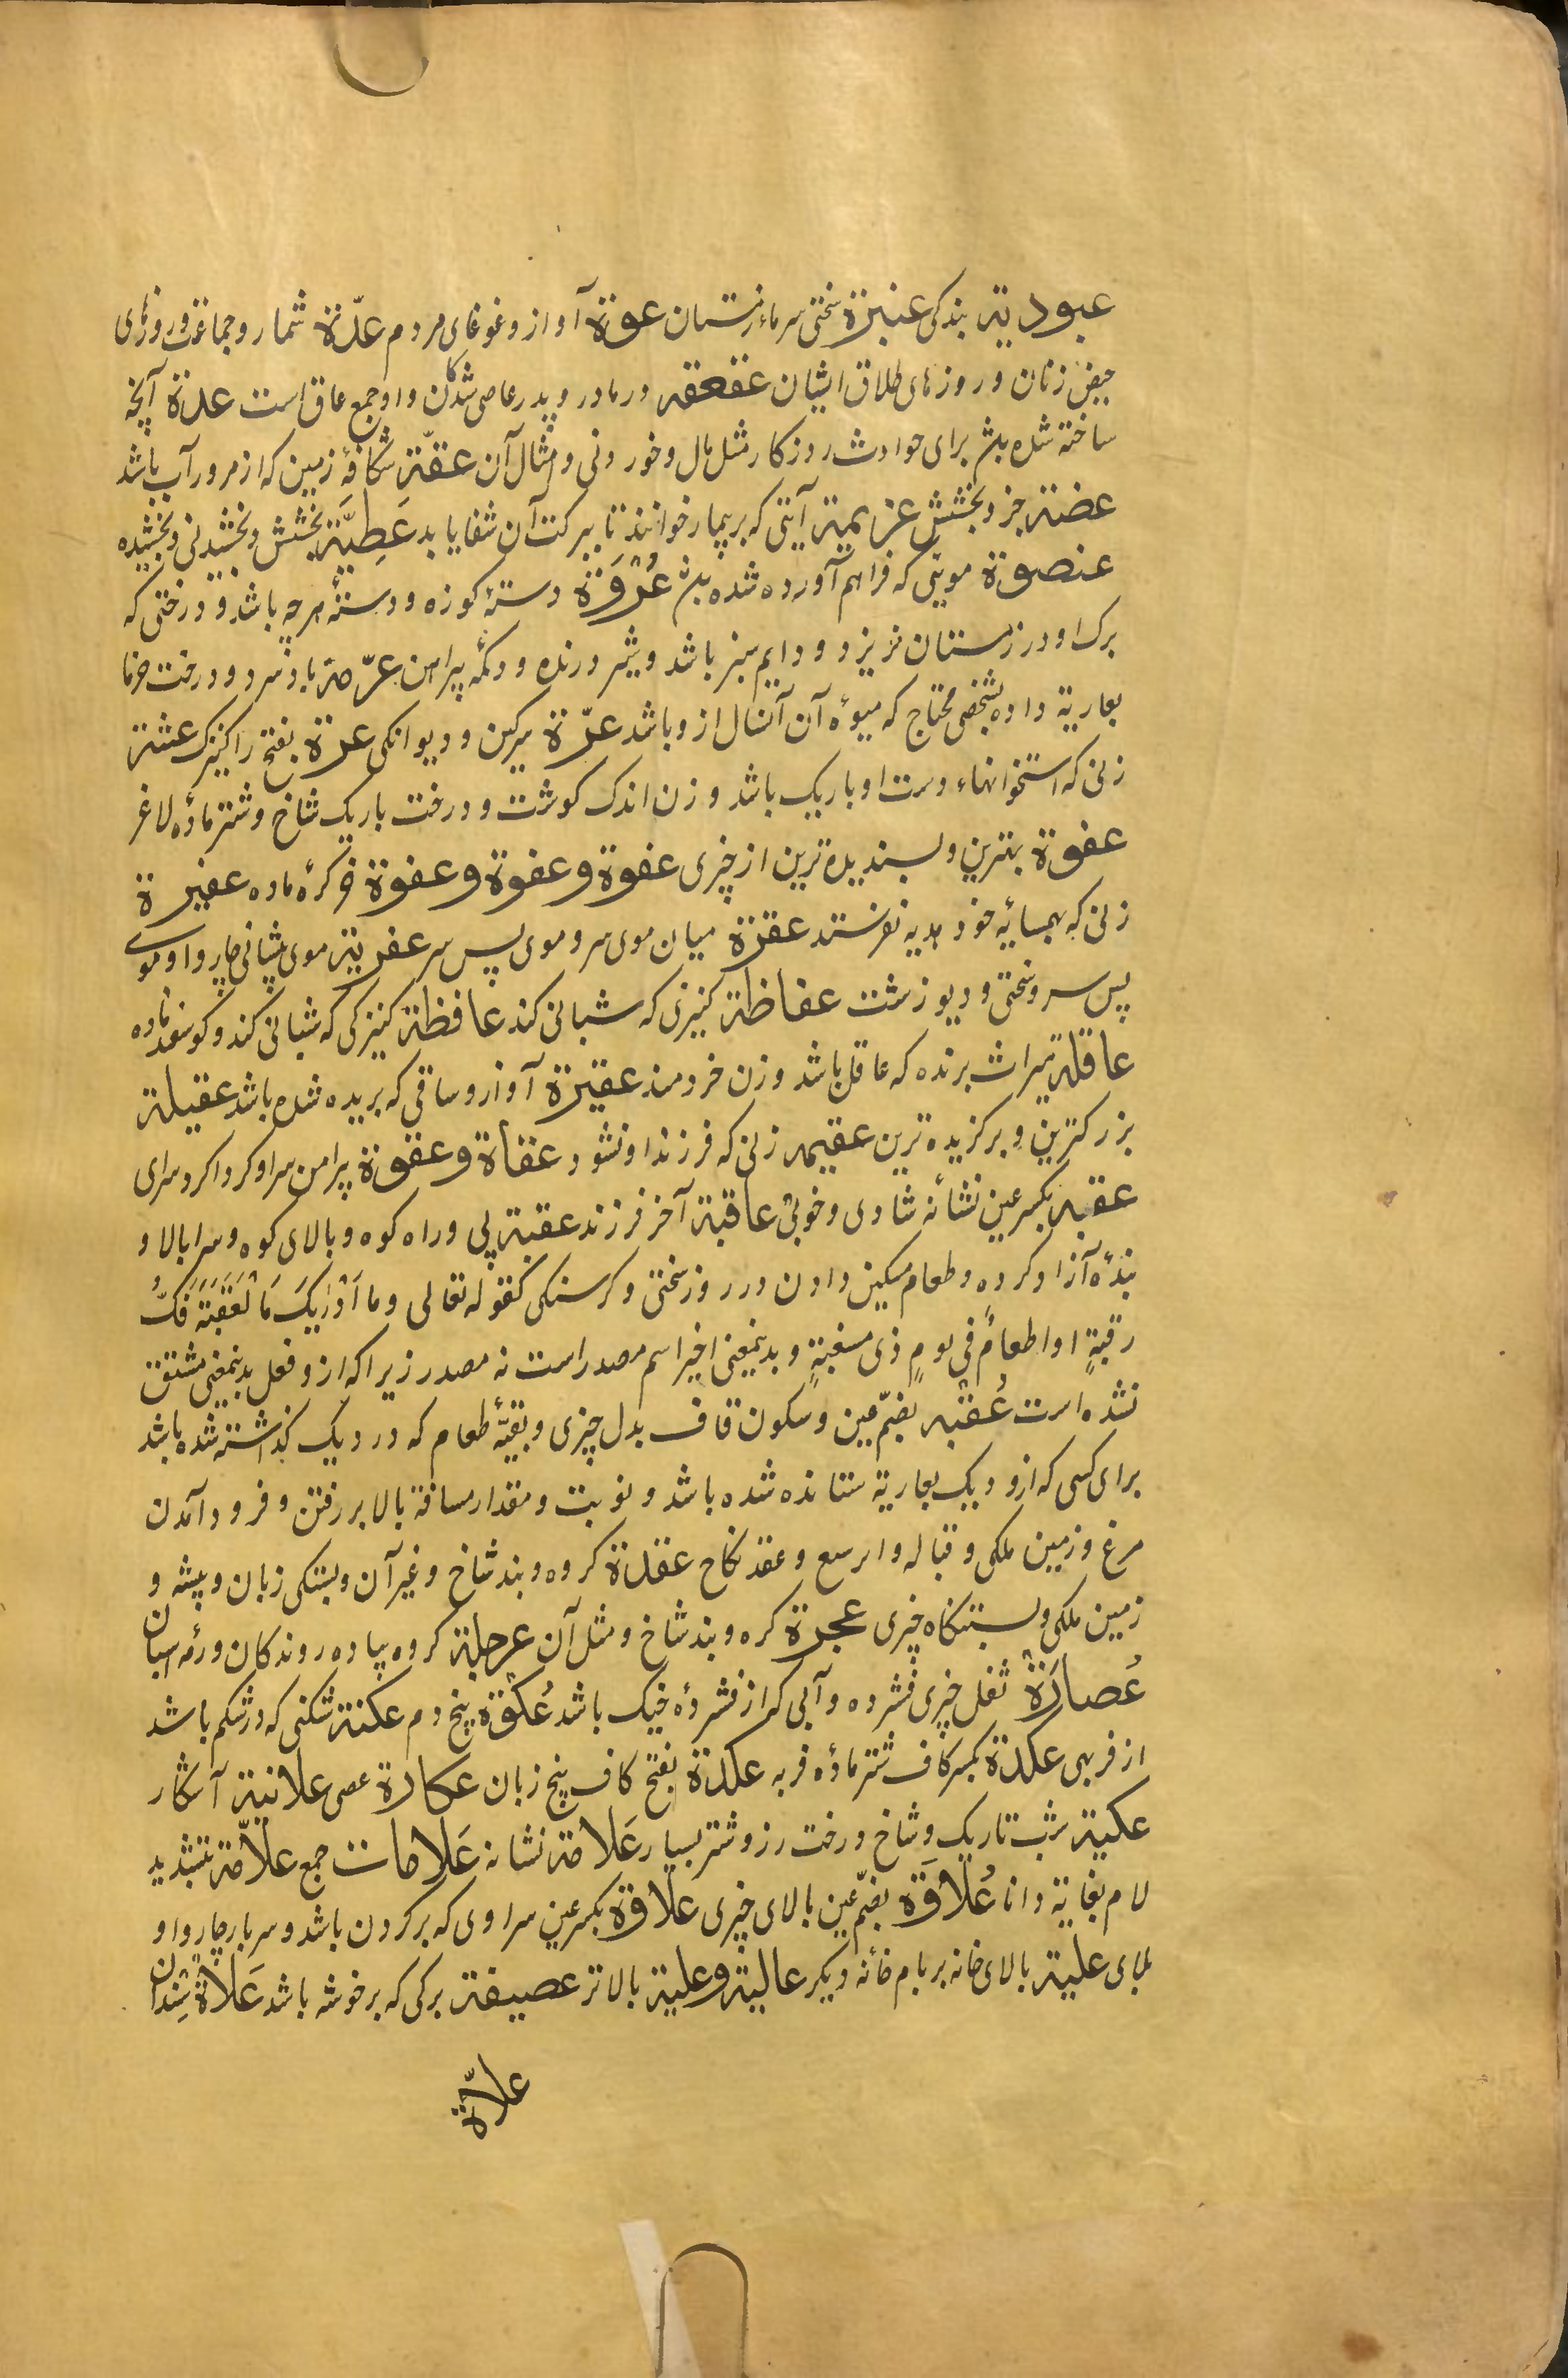 عبودیة بندکی عنبرة سختی سرماء زمستان عوة آواز و غوغای مردم عدّة شمار و جماعة و روزهای
حیض زنان و روزهای طلاق ایشان عققعقه در مادر و پدر عاصی شدکان و او جمع عاق است عدة آنچه
ساخته شده بش برای حوادث روزکار مثل مال و خوردنی و امثال آن عقّة شکافۀ زمین که از مرور آب باشد
عضة جز و بخشش عزیمة آیتی که بر بیمار خوانند تا ببرکت آن شفا یابد عَطِیَّة بخشش و بخشیدنی و بخشیده
عنصوة مویی که فراهم آورده شده بش عُرْوَة دستۀ کوزه و دستۀ هرچه باشد و درختی که
برک او در زمستان نریزد و دایم سبز باشد و شیر درنده و دکمۀ پیراهن عرّصة باد سرد و درخت خرما
بعاریة داده بشخصی محتاج که میوۀ آن آنسال ازو باشد عرّة سرکین و دیوانکی عرة بفتح را کنیزک عشة
زنی که استخوانهاء دست او باریک باشد و زن اندک کوشت و درخت باریک شاخ و شتر مادۀ لاغر
عفوة بهترین و پسندیده ترین از چیزی عفوة و عفوة و عفوة خر کرۀ ماده عفیرة
زنی که بهمسایۀ خود هدیه نفرستد عقزة میان موی سر و موی پس سر عفریة موی پیشانی چاروا و موی
پس سر و سختی و دیو زشت عفاظة کنیزی که شبانی کند عافظة کنیزکی که شبانی کند و کوسفند ماده
عاقلة میراث برنده که عاقل باشد و زن خردمند عقیرة آواز و ساقی که بریده شده باشد عقیلة
بزرکترین و برکزیده ترین عقیمه زنی که فرزند او نشود عقاة و عقوة پیرامن سرا و کرداکرد سرای
عقبه بکسر عین نشانۀ شادی و خوبی عاقبة آخر فرزند عقبة پی و راه کوه و بالای کوه و سرابالا و
بندۀ آزاد کرده و طعام مسکین دادن در روز سختی و کرسنکی کقوله تعالی و ما اَدْرٰیکَ مَا لْعَقَبَةَ فَکُّ
رقبةٍ او اطعامٌ فی یومٍ ذی مسغبةٍ و بدینمعنی اخیر اسم مصدر است نه مصدر زیراکه ازو فعل بدینمعنی مشتق
نشده است عُقْبه بضمّ عین و سکون قاف بدل چیزی و بقیّۀ طعام که در دیک کذاشته شده باشد
برای کسی که ازو دیک بعاریة ستانده شده باشد و نوبت و مقدار مسافة بالا بر رفتن و فرود آمدن
مرغ و زمین ملکی و قباله و عقد نکاح عقدة کروه و بند شاخ و غیر آن و بستکی زبان و بیشه و
زمین ملکی و بستنکاه چیزی عجرة کره و بند شاخ و مثل آن عرجلة کروه پیاده روندکان و رمۀ اسبان
عُصارَة ثفل چیزی فشرده و آبی که از فشردۀ خیک باشد عُکْوة بیخ دم عکنة شکنی که در شکم باشد
از فربهی عکدة بکسر کاف شتر مادۀ فربه عکدة بفتح کاف بیخ زبان عکازة عصی علانیة آشکار
عکبة شب تاریک و شاخ درخت رز و شتر بسیار عَلامة نشانه عَلامات جمع علاّمة بتشدید
لام بغایة دانا عُلاوَة بضمّ عین بالای چیزی علاوة بکسر عین سراوی که بر کردن باشد و سربار چاروا و
بلای علیة بالای خانه بر بام خانۀ دیکر عالیة و علیة بالاتر عصیفة برکی که بر خوشه باشد عَلاة سِندان
علاّة